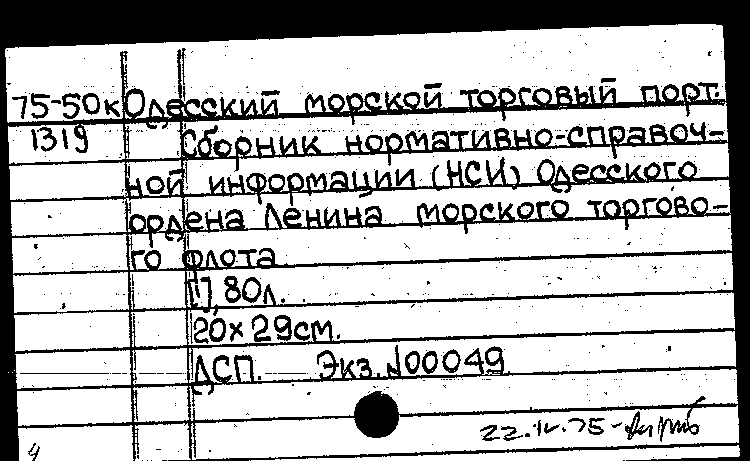 75-50к Одесский морской торговый порт.
1319 Сборник нормативно-справоч-
ной информации (НСИ) Одесского
ордена Ленина морского торгово-
го флота
[1], 80л.
20х29см.
ДСП. Экз. №00049
22.IV.75-
4